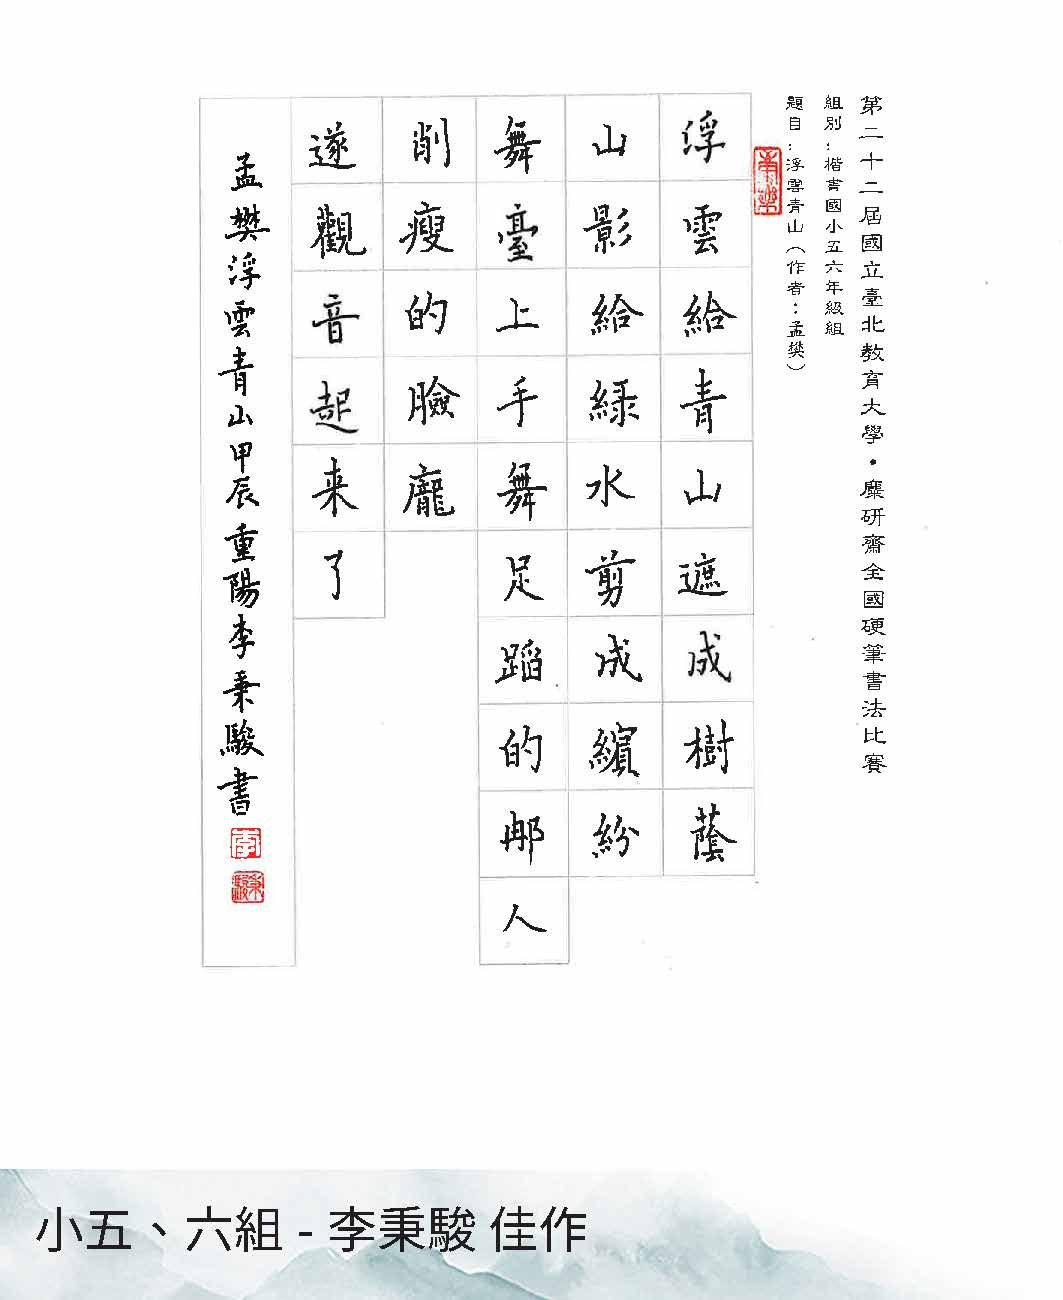 第二十二屆國立臺北教育大學・麋研齋全國硬筆書法比賽
組別：楷書國小五六年級組
題目：浮雲青山（作者：孟樊）
浮雲給青山遮成樹蔭
山影給綠水剪成繽紛
舞臺上手舞足蹈的那人
削瘦的臉龐
遂觀音起來了
孟樊浮雲青山甲辰重陽李秉駿書
李
秉駿
小五、六組 - 李秉駿 佳作